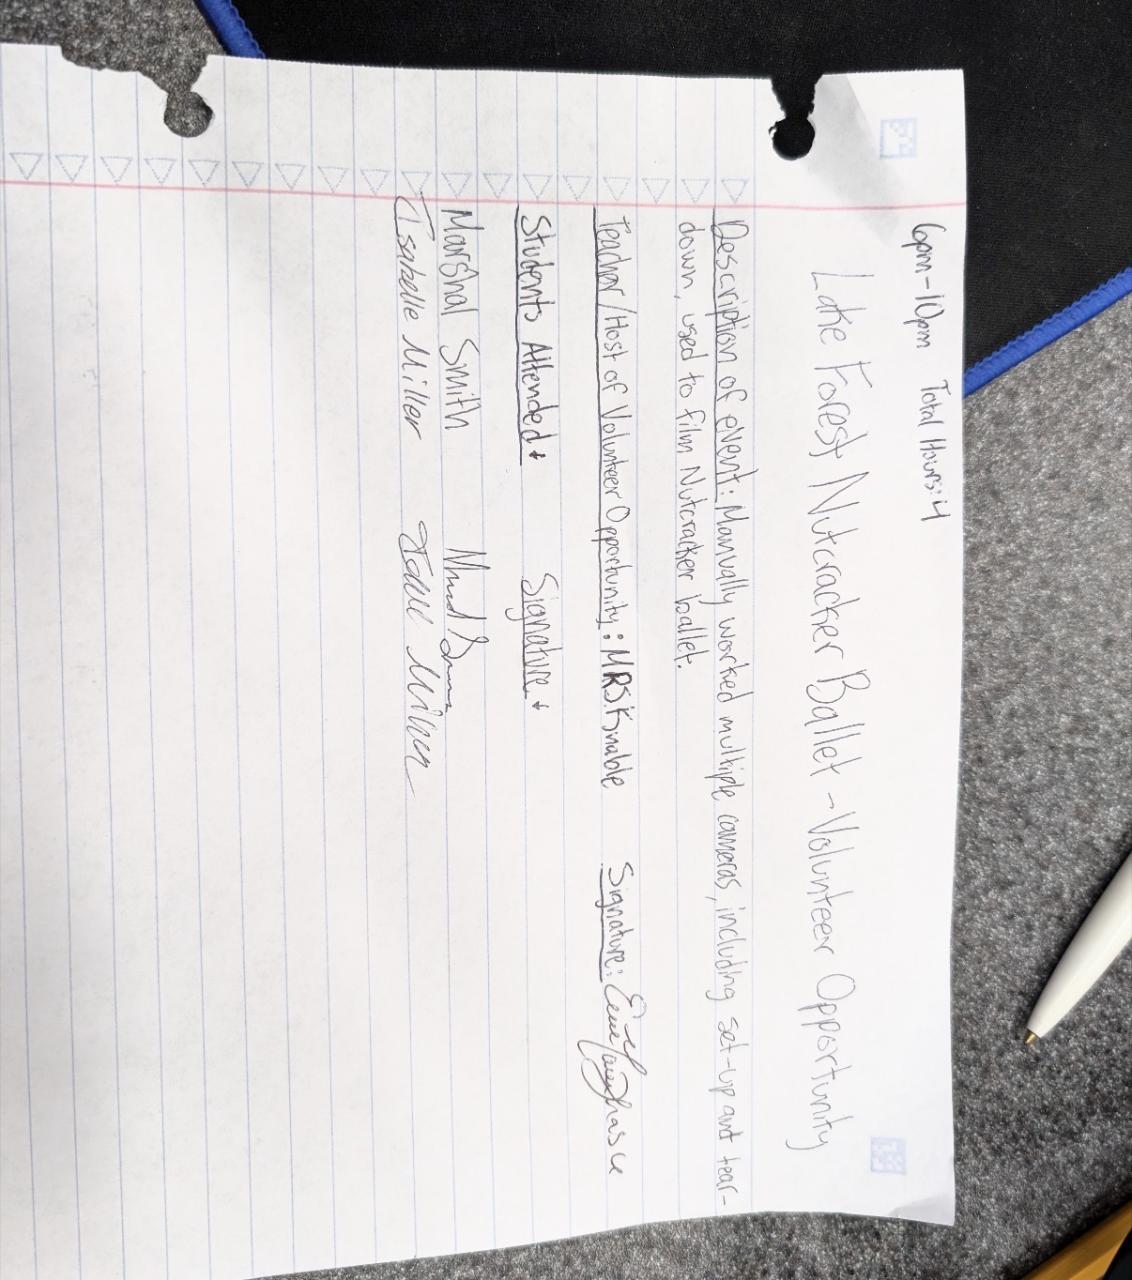 6pm-10pm Total Hours: 4
Lake Forest Nutcracker Ballet - Volunteer Opportunity
Description of event: Manually worked multiple cameras, including set-up and tear-
down, used to film Nutcracker ballet.
Teacher/Host of Volunteer Opportunity: MRS Knable Signature:
Students Attended↓ Signature↓
Marshal Smith
Isabelle Miller